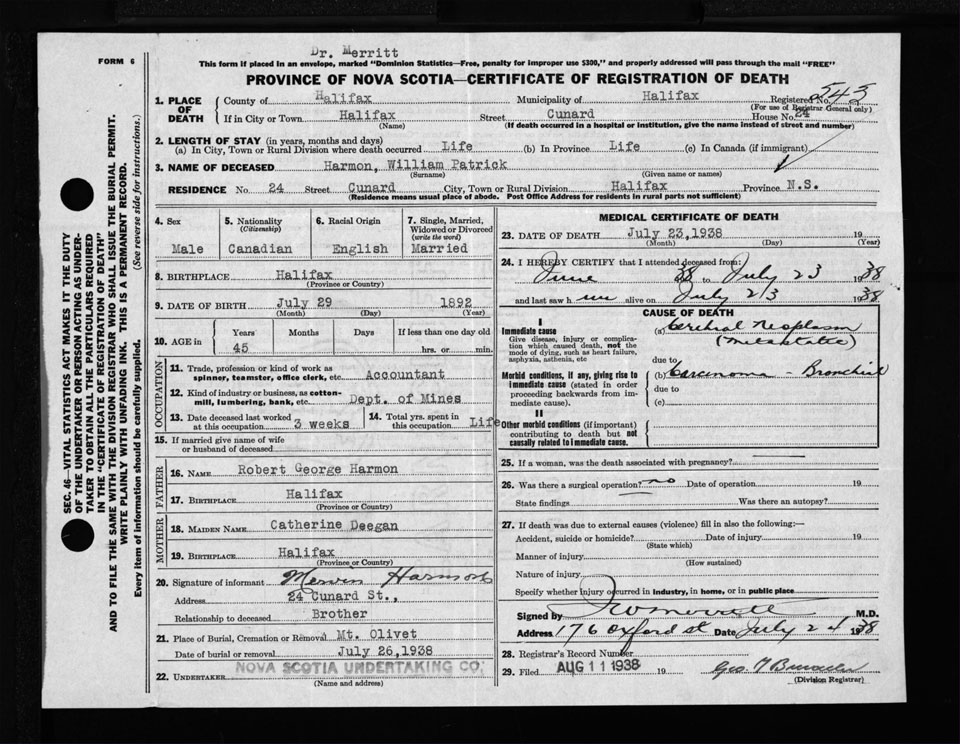 Dr. Merritt
FORM 6
This form if placed in an envelope, marked "Dominion Statistics—Free, penalty for improper use $300," and properly addressed will pass through the mail "FREE"
PROVINCE OF NOVA SCOTIA—CERTIFICATE OF REGISTRATION OF DEATH
1. PLACE OF DEATH County of Halifax Municipality of Halifax Registered No. 543
(For use of Registrar General only)
If in City or Town Halifax Street Cunard House No. 24
(Name) (If death occurred in a hospital or institution, give the name instead of street and number)
2. LENGTH OF STAY (in years, months and days)
(a) In City, Town or Rural Division where death occurred Life (b) In Province Life (c) In Canada (if immigrant)
3. NAME OF DECEASED Harmon, William Patrick
(Surname) (Given name or names)
RESIDENCE No. 24 Street Cunard City, Town or Rural Division Halifax Province N.S.
(Residence means usual place of abode. Post Office Address for residents in rural parts not sufficient)
4. Sex 5. Nationality (Citizenship) 6. Racial Origin 7. Single, Married, Widowed or Divorced (write the word)
Male Canadian English Married
8. BIRTHPLACE Halifax
(Province or Country)
9. DATE OF BIRTH July 29 1892
(Month) (Day) (Year)
10. AGE in Years Months Days If less than one day old
45 hrs. or min.
OCCUPATION
11. Trade, profession or kind of work as spinner, teamster, office clerk, etc. Accountant
12. Kind of industry or business, as cotton-mill, lumbering, bank, etc. Dept. of Mines
13. Date deceased last worked at this occupation 3 weeks 14. Total yrs. spent in this occupation Life
15. If married give name of wife or husband of deceased
FATHER
16. NAME Robert George Harmon
17. BIRTHPLACE Halifax
(Province or Country)
MOTHER
18. MAIDEN NAME Catherine Deegan
19. BIRTHPLACE Halifax
(Province or Country)
20. Signature of informant Mervin Harmon
Address 24 Cunard St.,
Relationship to deceased Brother
21. Place of Burial, Cremation or Removal Mt. Olivet
Date of burial or removal July 26,1938
22. UNDERTAKER NOVA SCOTIA UNDERTAKING CO.
(Name and address)
MEDICAL CERTIFICATE OF DEATH
23. DATE OF DEATH July 23,1938 19
(Month) (Day) (Year)
24. I HEREBY CERTIFY that I attended deceased from:
June 38 to July 23 1938
and last saw him alive on July 23 1938
CAUSE OF DEATH
I
Immediate cause (a) Cerebral Neoplasm
Give disease, injury or complication which caused death, not the mode of dying, such as heart failure, asphyxia, asthenia, etc (Metastatic)
due to
Morbid conditions, if any, giving rise to immediate cause (stated in order proceeding backwards from immediate cause). (b) Carcinoma - Bronchial
due to
(c)
II
Other morbid conditions (if important) contributing to death but not causally related to immediate cause.
25. If a woman, was the death associated with pregnancy?
26. Was there a surgical operation? no Date of operation 19
State findings Was there an autopsy?
27. If death was due to external causes (violence) fill in also the following:—
Accident, suicide or homicide? Date of injury 19
(State which)
Manner of injury
(How sustained)
Nature of injury
Specify whether injury occurred in Industry, in home, or in public place
Signed by Merritt M.D.
Address 176 Oxford St Date July 24 1938
28. Registrar's Record Number
29. Filed AUG 11 1938 19
(Division Registrar)
SEC. 46—VITAL STATISTICS ACT MAKES IT THE DUTY
OF THE UNDERTAKER OR PERSON ACTING AS UNDER-
TAKER TO OBTAIN ALL THE PARTICULARS REQUIRED
IN THE "CERTIFICATE OF REGISTRATION OF DEATH"
AND TO FILE THE SAME WITH THE DIVISION REGISTRAR WHO SHALL ISSUE THE BURIAL PERMIT.
WRITE PLAINLY WITH UNFADING INK. THIS IS A PERMANENT RECORD.
Every item of information should be carefully supplied. (See reverse side for instructions.)